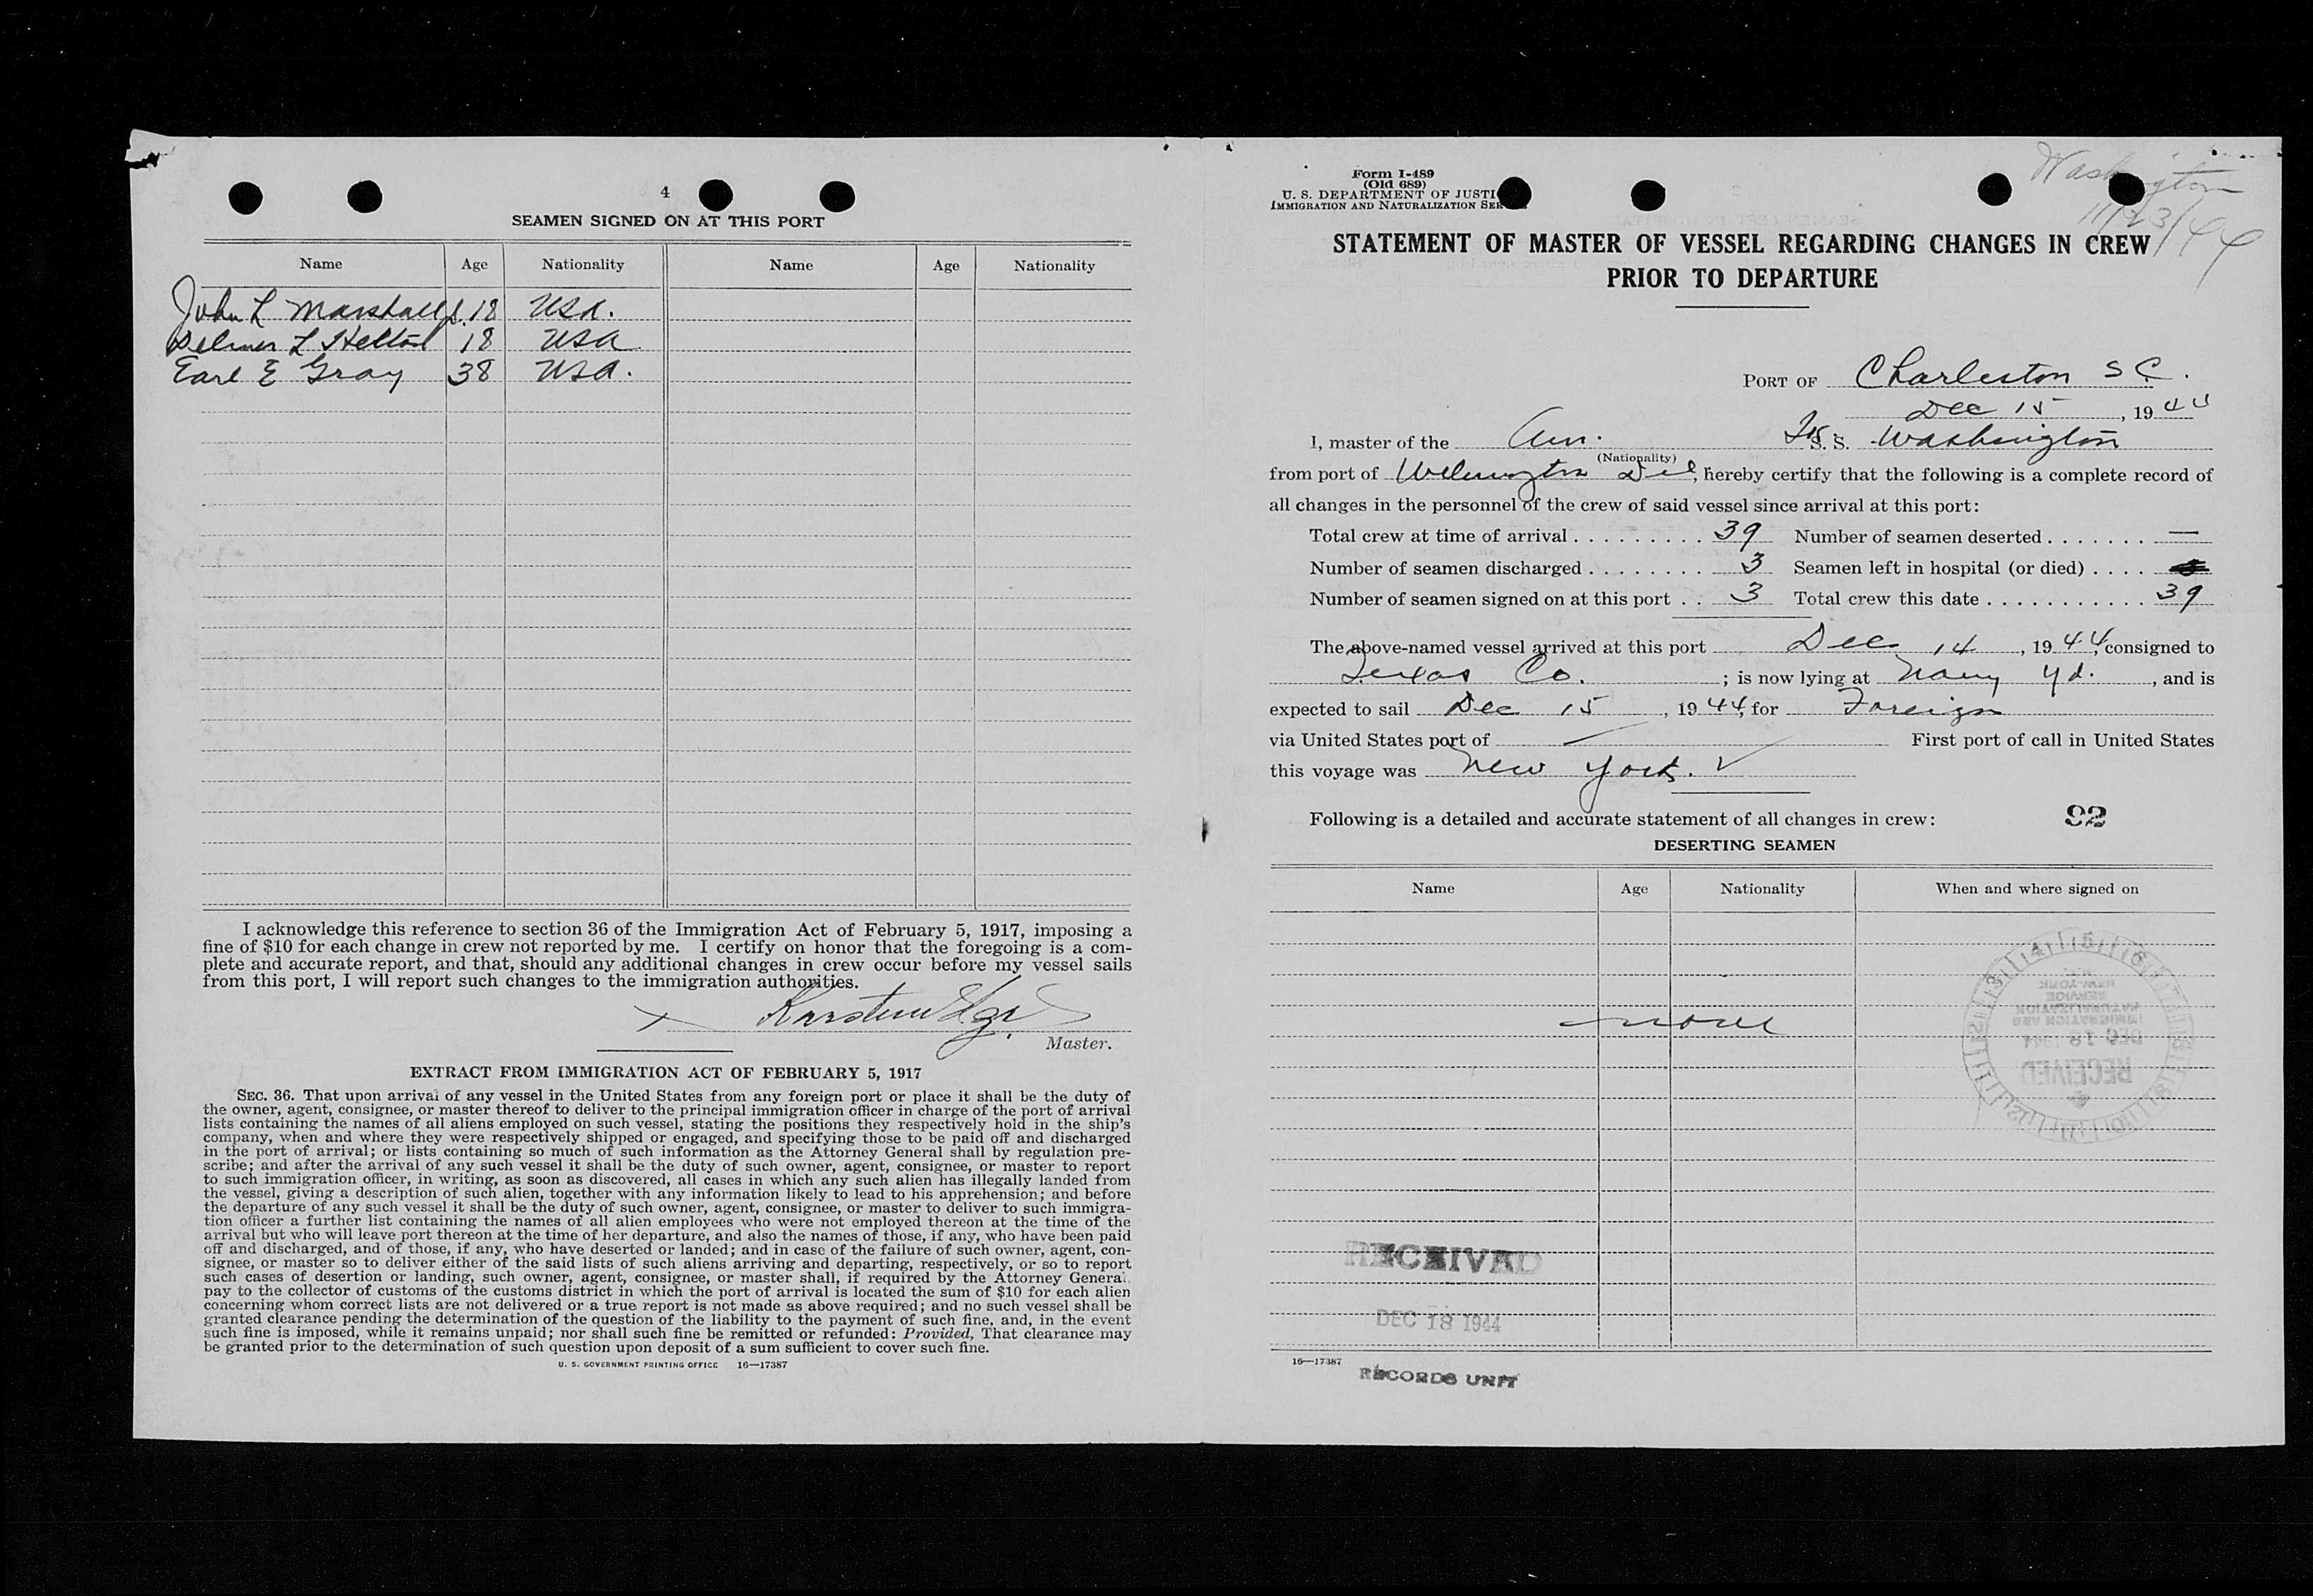 4
SEAMEN SIGNED ON AT THIS PORT
Name Age Nationality Name Age Nationality
John L Marshall Jr. 18 USA.
Delmer L Helton 18 USA
Earl E Gray 38 USA.
I acknowledge this reference to section 36 of the Immigration Act of February 5, 1917, imposing a
fine of $10 for each change in crew not reported by me. I certify on honor that the foregoing is a com-
plete and accurate report, and that, should any additional changes in crew occur before my vessel sails
from this port, I will report such changes to the immigration authorities.
Master.
EXTRACT FROM IMMIGRATION ACT OF FEBRUARY 5, 1917
SEC. 36. That upon arrival of any vessel in the United States from any foreign port or place it shall be the duty of
the owner, agent, consignee, or master thereof to deliver to the principal immigration officer in charge of the port of arrival
lists containing the names of all aliens employed on such vessel, stating the positions they respectively hold in the ship's
company, when and where they were respectively shipped or engaged, and specifying those to be paid off and discharged
in the port of arrival; or lists containing so much of such information as the Attorney General shall by regulation pre-
scribe; and after the arrival of any such vessel it shall be the duty of such owner, agent, consignee, or master to report
to such immigration officer, in writing, as soon as discovered, all cases in which any such alien has illegally landed from
the vessel, giving a description of such alien, together with any information likely to lead to his apprehension; and before
the departure of any such vessel it shall be the duty of such owner, agent, consignee, or master to deliver to such immigra-
tion officer a further list containing the names of all alien employees who were not employed thereon at the time of the
arrival but who will leave port thereon at the time of her departure, and also the names of those, if any, who have been paid
off and discharged, and of those, if any, who have deserted or landed; and in case of the failure of such owner, agent, con-
signee, or master so to deliver either of the said lists of such aliens arriving and departing, respectively, or so to report
such cases of desertion or landing, such owner, agent, consignee, or master shall, if required by the Attorney General,
pay to the collector of customs of the customs district in which the port of arrival is located the sum of $10 for each alien
concerning whom correct lists are not delivered or a true report is not made as above required; and no such vessel shall be
granted clearance pending the determination of the question of the liability to the payment of such fine, and, in the event
such fine is imposed, while it remains unpaid; nor shall such fine be remitted or refunded: Provided, That clearance may
be granted prior to the determination of such question upon deposit of a sum sufficient to cover such fine.
U. S. GOVERNMENT PRINTING OFFICE 16—17387
Form I-489
(Old 689)
U. S. DEPARTMENT OF JUSTI
IMMIGRATION AND NATURALIZATION SER
Washington
11/23/44
STATEMENT OF MASTER OF VESSEL REGARDING CHANGES IN CREW
PRIOR TO DEPARTURE
PORT OF Charleston S C.
Dec 15, 1944
I, master of the Am. S. S. Washington
(Nationality)
from port of Wilmington Del, hereby certify that the following is a complete record of
all changes in the personnel of the crew of said vessel since arrival at this port:
Total crew at time of arrival 39 Number of seamen deserted —
Number of seamen discharged 3 Seamen left in hospital (or died)
Number of seamen signed on at this port 3 Total crew this date 39
The above-named vessel arrived at this port Dec 14, 1944, consigned to
Texas Co.; is now lying at Navy Yd., and is
expected to sail Dec 15, 1944, for Foreign
via United States port of — First port of call in United States
this voyage was New York. ✓
Following is a detailed and accurate statement of all changes in crew: 92
DESERTING SEAMEN
Name Age Nationality When and where signed on
none
RECEIVED
DEC 18 1944
IMMIGRATION AND
NATURALIZATION
SERVICE
NEW-YORK
RECEIVED
DEC 18 1944
16—17387
RECORDS UNIT